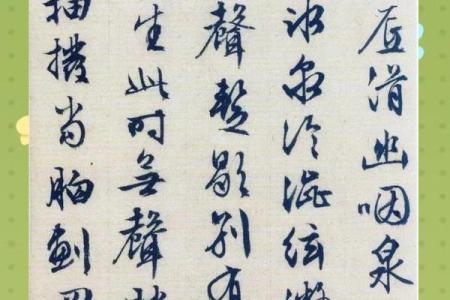 底滑幽咽泉
冰泉冷澀弦凝
聲暫歇別有
生此時無聲勝
抽撥當胸劃